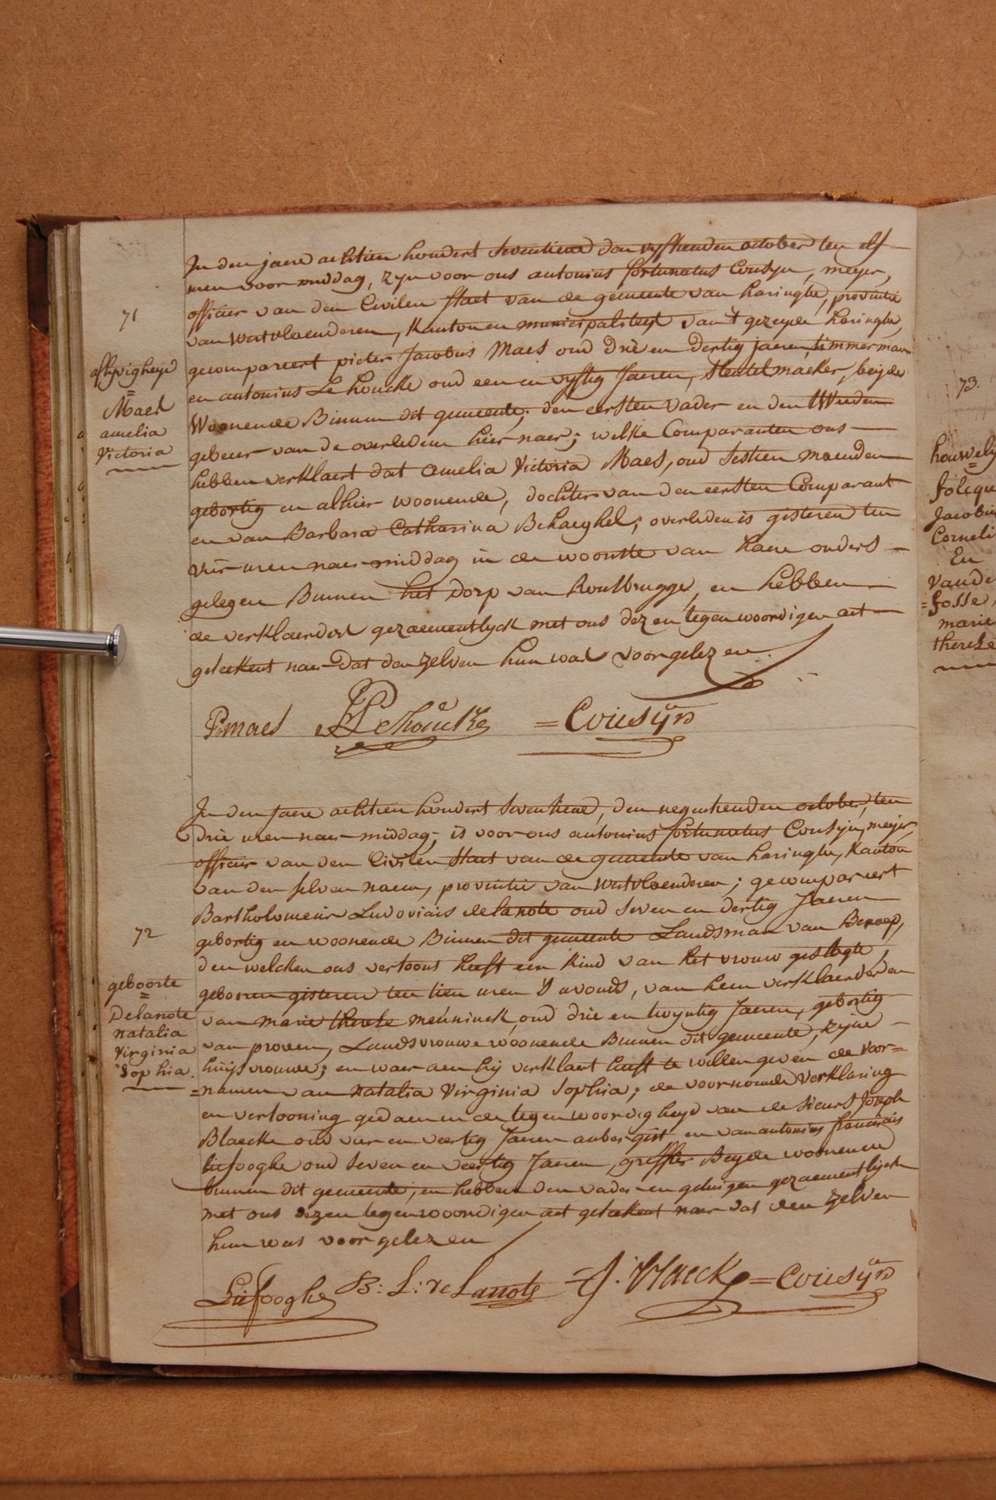 71
afhyvigheyd
Maes
amelia
Victoria
In den jaere achtien hondert seventiene den vyfthenden october ten elf
uren voor middag, zyn voor ons antonius fortunatus Cousyn, meyer,
officier van den Civilen Staet van de gemeente van haringhe, provintie
van westvlaenderen, Kanton en municipaliteyt van 't gezeyde haringhe,
gecompareert pieter Jacobus Maes oud Drie en dertig jaeren, timmerman
en antonius Le houcke oud een en vyftig Jaeren, stoelmaeker, beyde
Woonende Binnen dit gemeente; den eersten vader en den tweeden
gebeur van de overledene hier naer; welke Comparanten ons
hebben verklaert dat amelia Victoria Maes, oud sestien maenden
gebortig en alhier woonende, dochter van den eersten Comparant
en van Barbara Catharina Behaeghel; overleden is gisteren ten
vier uren naer middag in de woonste van haere ouders
gelegen Binnen het Dorp van Rousbrugge, en hebben
de verklaerders gezaementlyck met ons dezen tegenwoordigen act
geteekent naer dat den zelven hun was voorgelezen.
P. maes Lehoucke = Cousyn
72
geboorte
Delanote
natalia
Virginia
Sophia
In den Jaere achtien hondert seventiene, den negenthenden october, ten
drie uren naer middag, is voor ons antonius fortunatus Cousyn, meyer,
officier van den Civilen Staet van de gemeente van haringhe, Kanton
van den selven naem, provintie van westvlaenderen; gecompareert
Bartholomeus Ludovicus delanote oud seven en dertig Jaeren
gebortig en woonende Binnen dit gemeente Landsman van Beroep,
den welcken ons vertoont heeft een kind van het vrouw geslagte,
geboren gisteren ten tien uren 's avonds, van hem verklaerder en
van marie therese meuninck, oud drie en twyntig Jaeren, gebortig
van proven, Landsvrouwe woonende Binnen dit gemeente, zyne
huysvrouwe; en waer aen hy verklaert heeft te willen geven de voor=
=namen van natalia Virginia Sophia; de voornoemde verklaring
en vertooning gedaen in de tegenwoordigheyd van de Sieurs Joseph
Blaecke oud vier en veertig Jaeren aubergist en van antonius franciscus
Liefooghe oud seven en veertig Jaeren, greffier Beyde woonende
binnen dit gemeente, en hebben den vader en getuigen gezaementlyck
met ons dezen tegenwoordigen act geteekent naer dat den zelven
hun was voorgelezen
Liefooghe B: L: de Lanote = J. Blaecke = Cousyn
73.